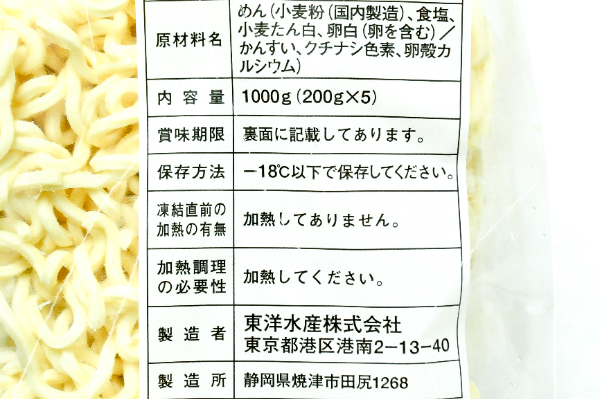 原材料名
めん(小麦粉(国内製造)、食塩、
小麦たん白、卵白(卵を含む)/
かんすい、クチナシ色素、卵殻カ
ルシウム)
内容量
1000g(200g×5)
賞味期限
裏面に記載してあります。
保存方法
−18℃以下で保存してください。
凍結直前の
加熱の有無
加熱してありません。
加熱調理
の必要性
加熱してください。
製造者
東洋水産株式会社
東京都港区港南2-13-40
製造所
静岡県焼津市田尻1268